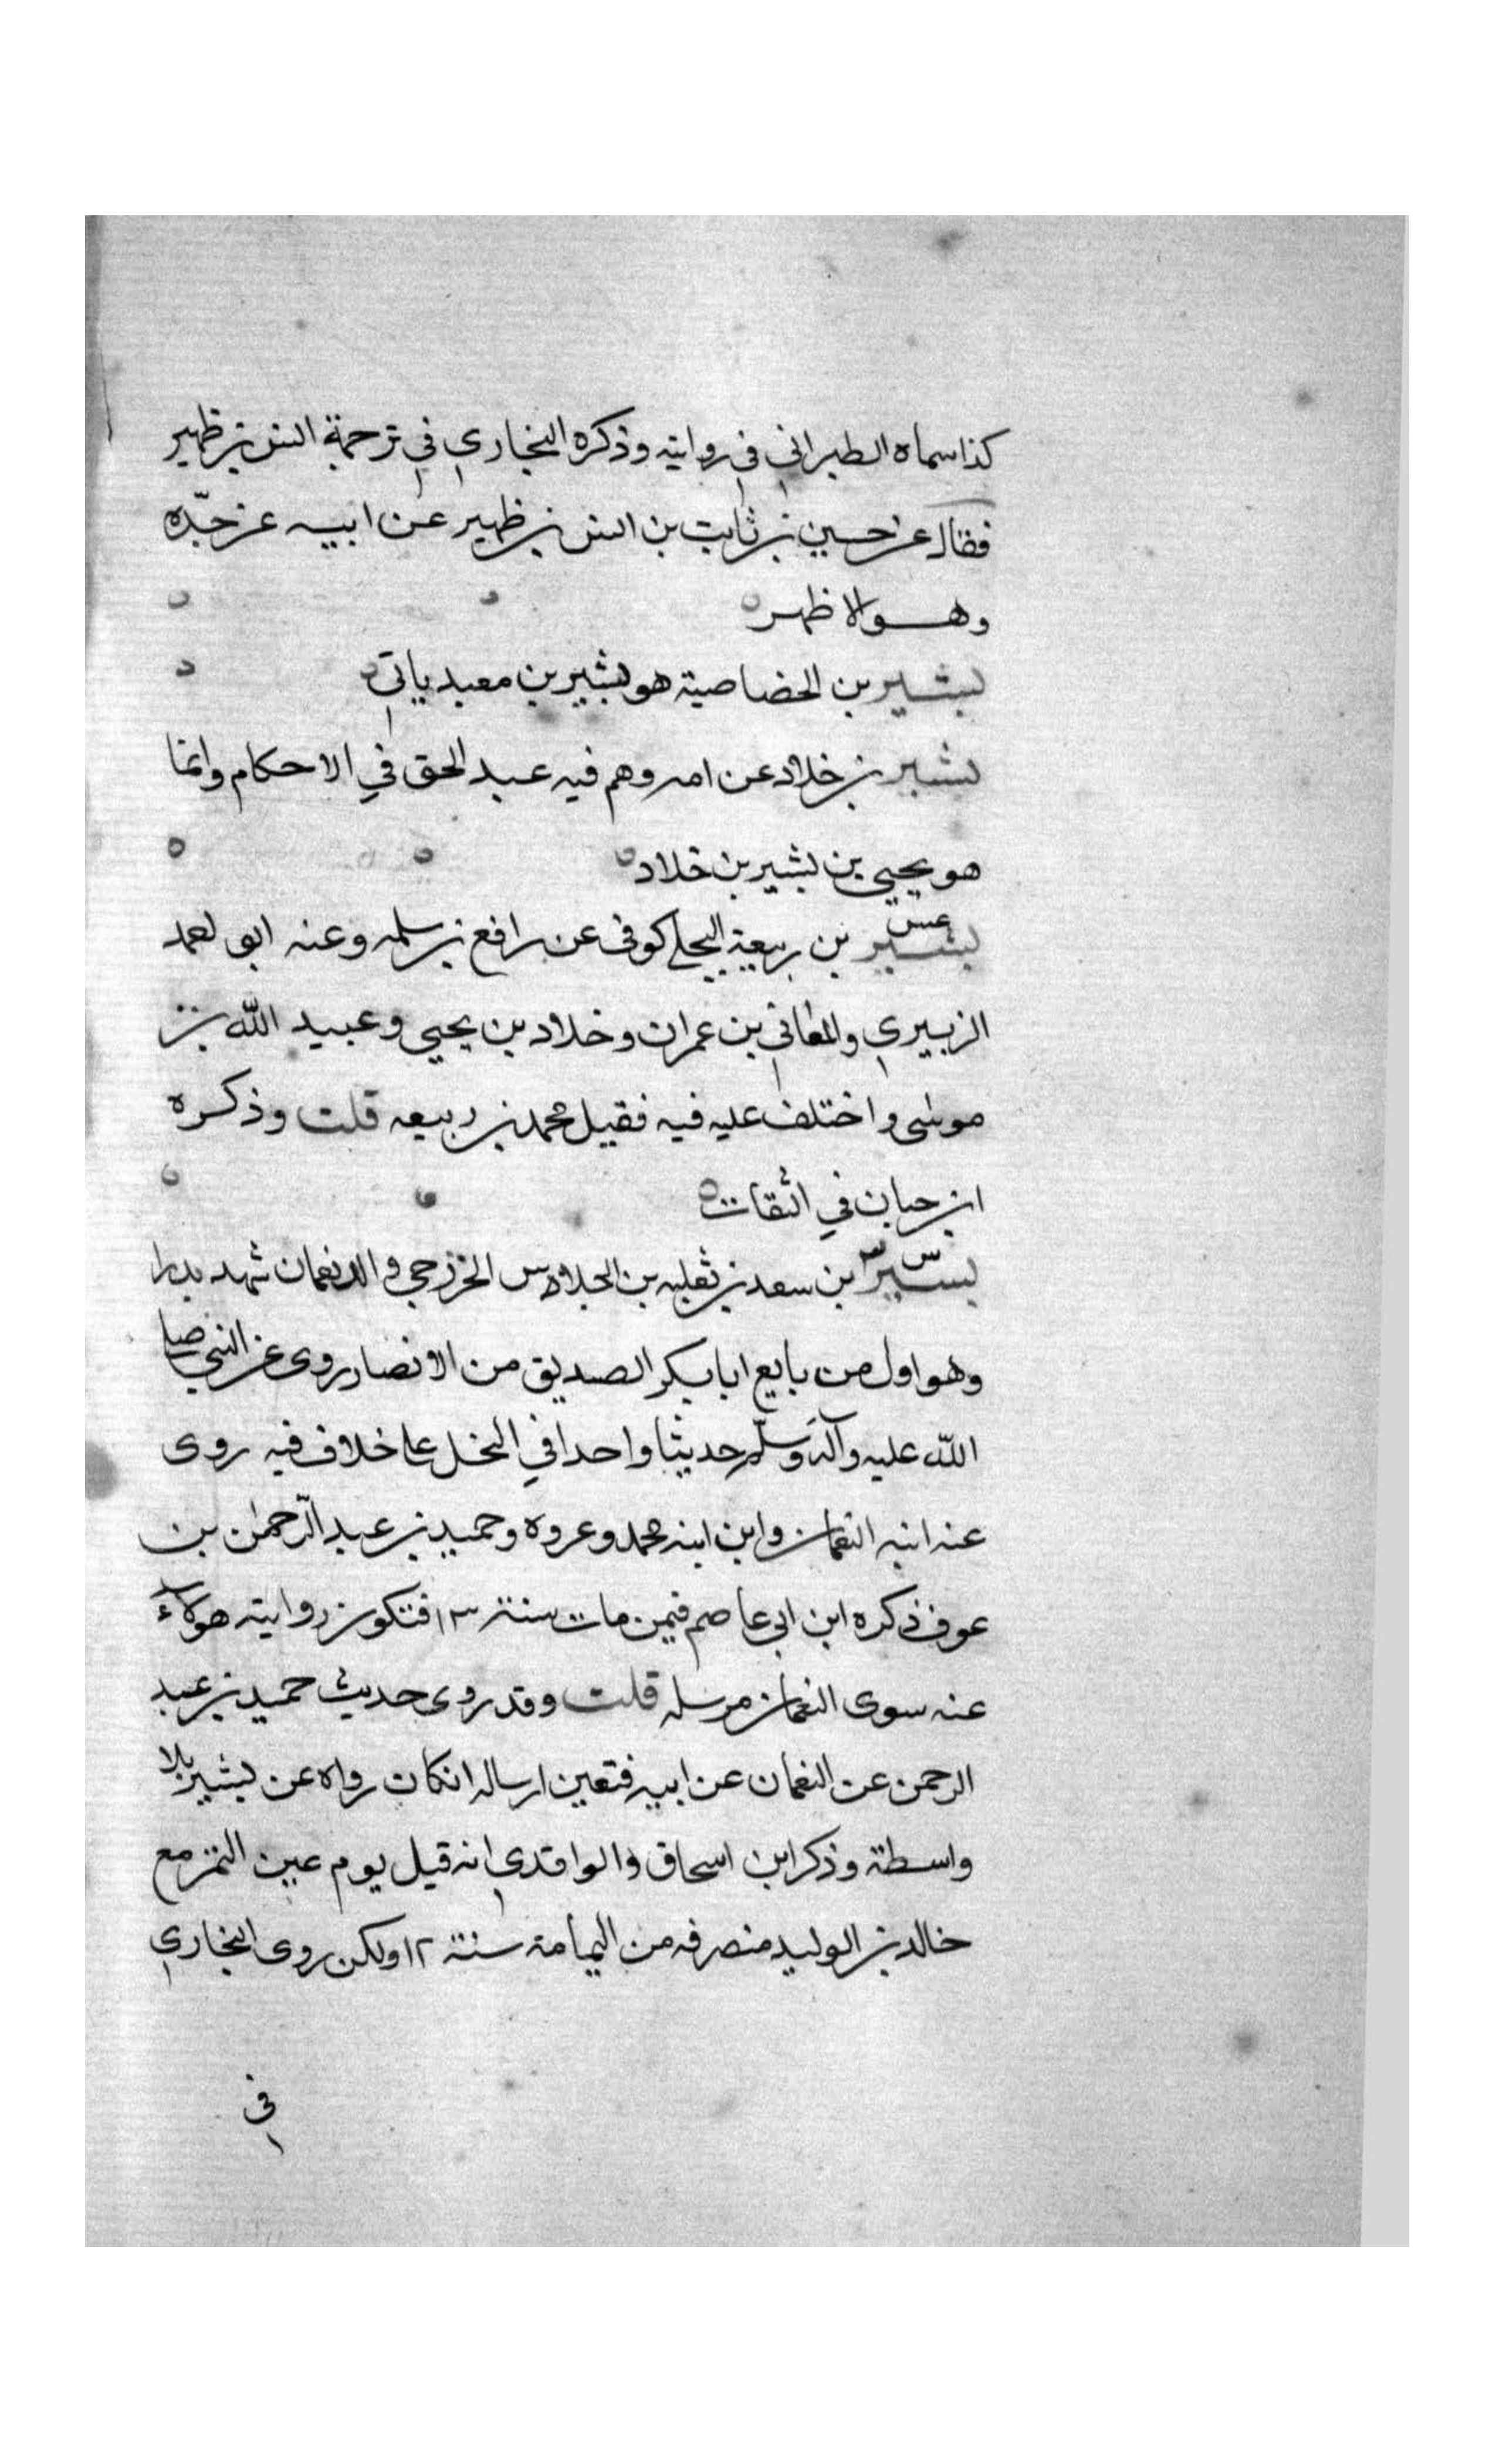 كذا سماه الطبراني في روايته وذكره البخاري في ترحمة انس بن ظهير
فقال عن حسين بن ثابت بن انس بن ظهير عن ابيه عن جدّه
وهو الاظهر
بشير بن الخصاصية هو بشير بن معبد ياتي
بشير بن خلاد عن امه وهم فيه عبد الحق في الاحكام وانما
هو يحيي بن بشير بن خلاد
عس
بشير بن ربيعة البجلي كوفي عن رافع بن سلمه وعنه ابو احمد
الزبيري والمعافي بن عمران وخلاد بن يحيي وعبيد الله بن
موسى واختلف عليه فيه فقيل محمد بن ربيعه قلت وذكره
ابن حبان في الثقات
س
بشير بن سعد بن ثعلبه بن الجلاس الخزرجي والد نعمان شهد بدرا
وهو اول من بايع ابا بكر الصديق من الانصار روى عن النبي صلى
الله عليه وآله وسلم حديثا واحدا في النحل على خلاف فيه روى
عنه ابنه النعمان وابن ابنه محمد وعروه وحميد بن عبد الرّحمن بن
عوف ذكره ابن ابي عاصم فيمن مات سنة ١٣ فتكون رواية هولاء
عنه سوى النعمان مرسله قلت وقد روى حديث حميد بن عبد
الرحمن عن النعمان عن ابيه فتعين ارساله انكان رواه عن بشير بلا
واسطة وذكر ابن اسحاق والواقدي انه قيل يوم عين التمر مع
خالد بن الوليد منصرفه من اليمامة سنة ١٢ ولكن روى البخاري
في